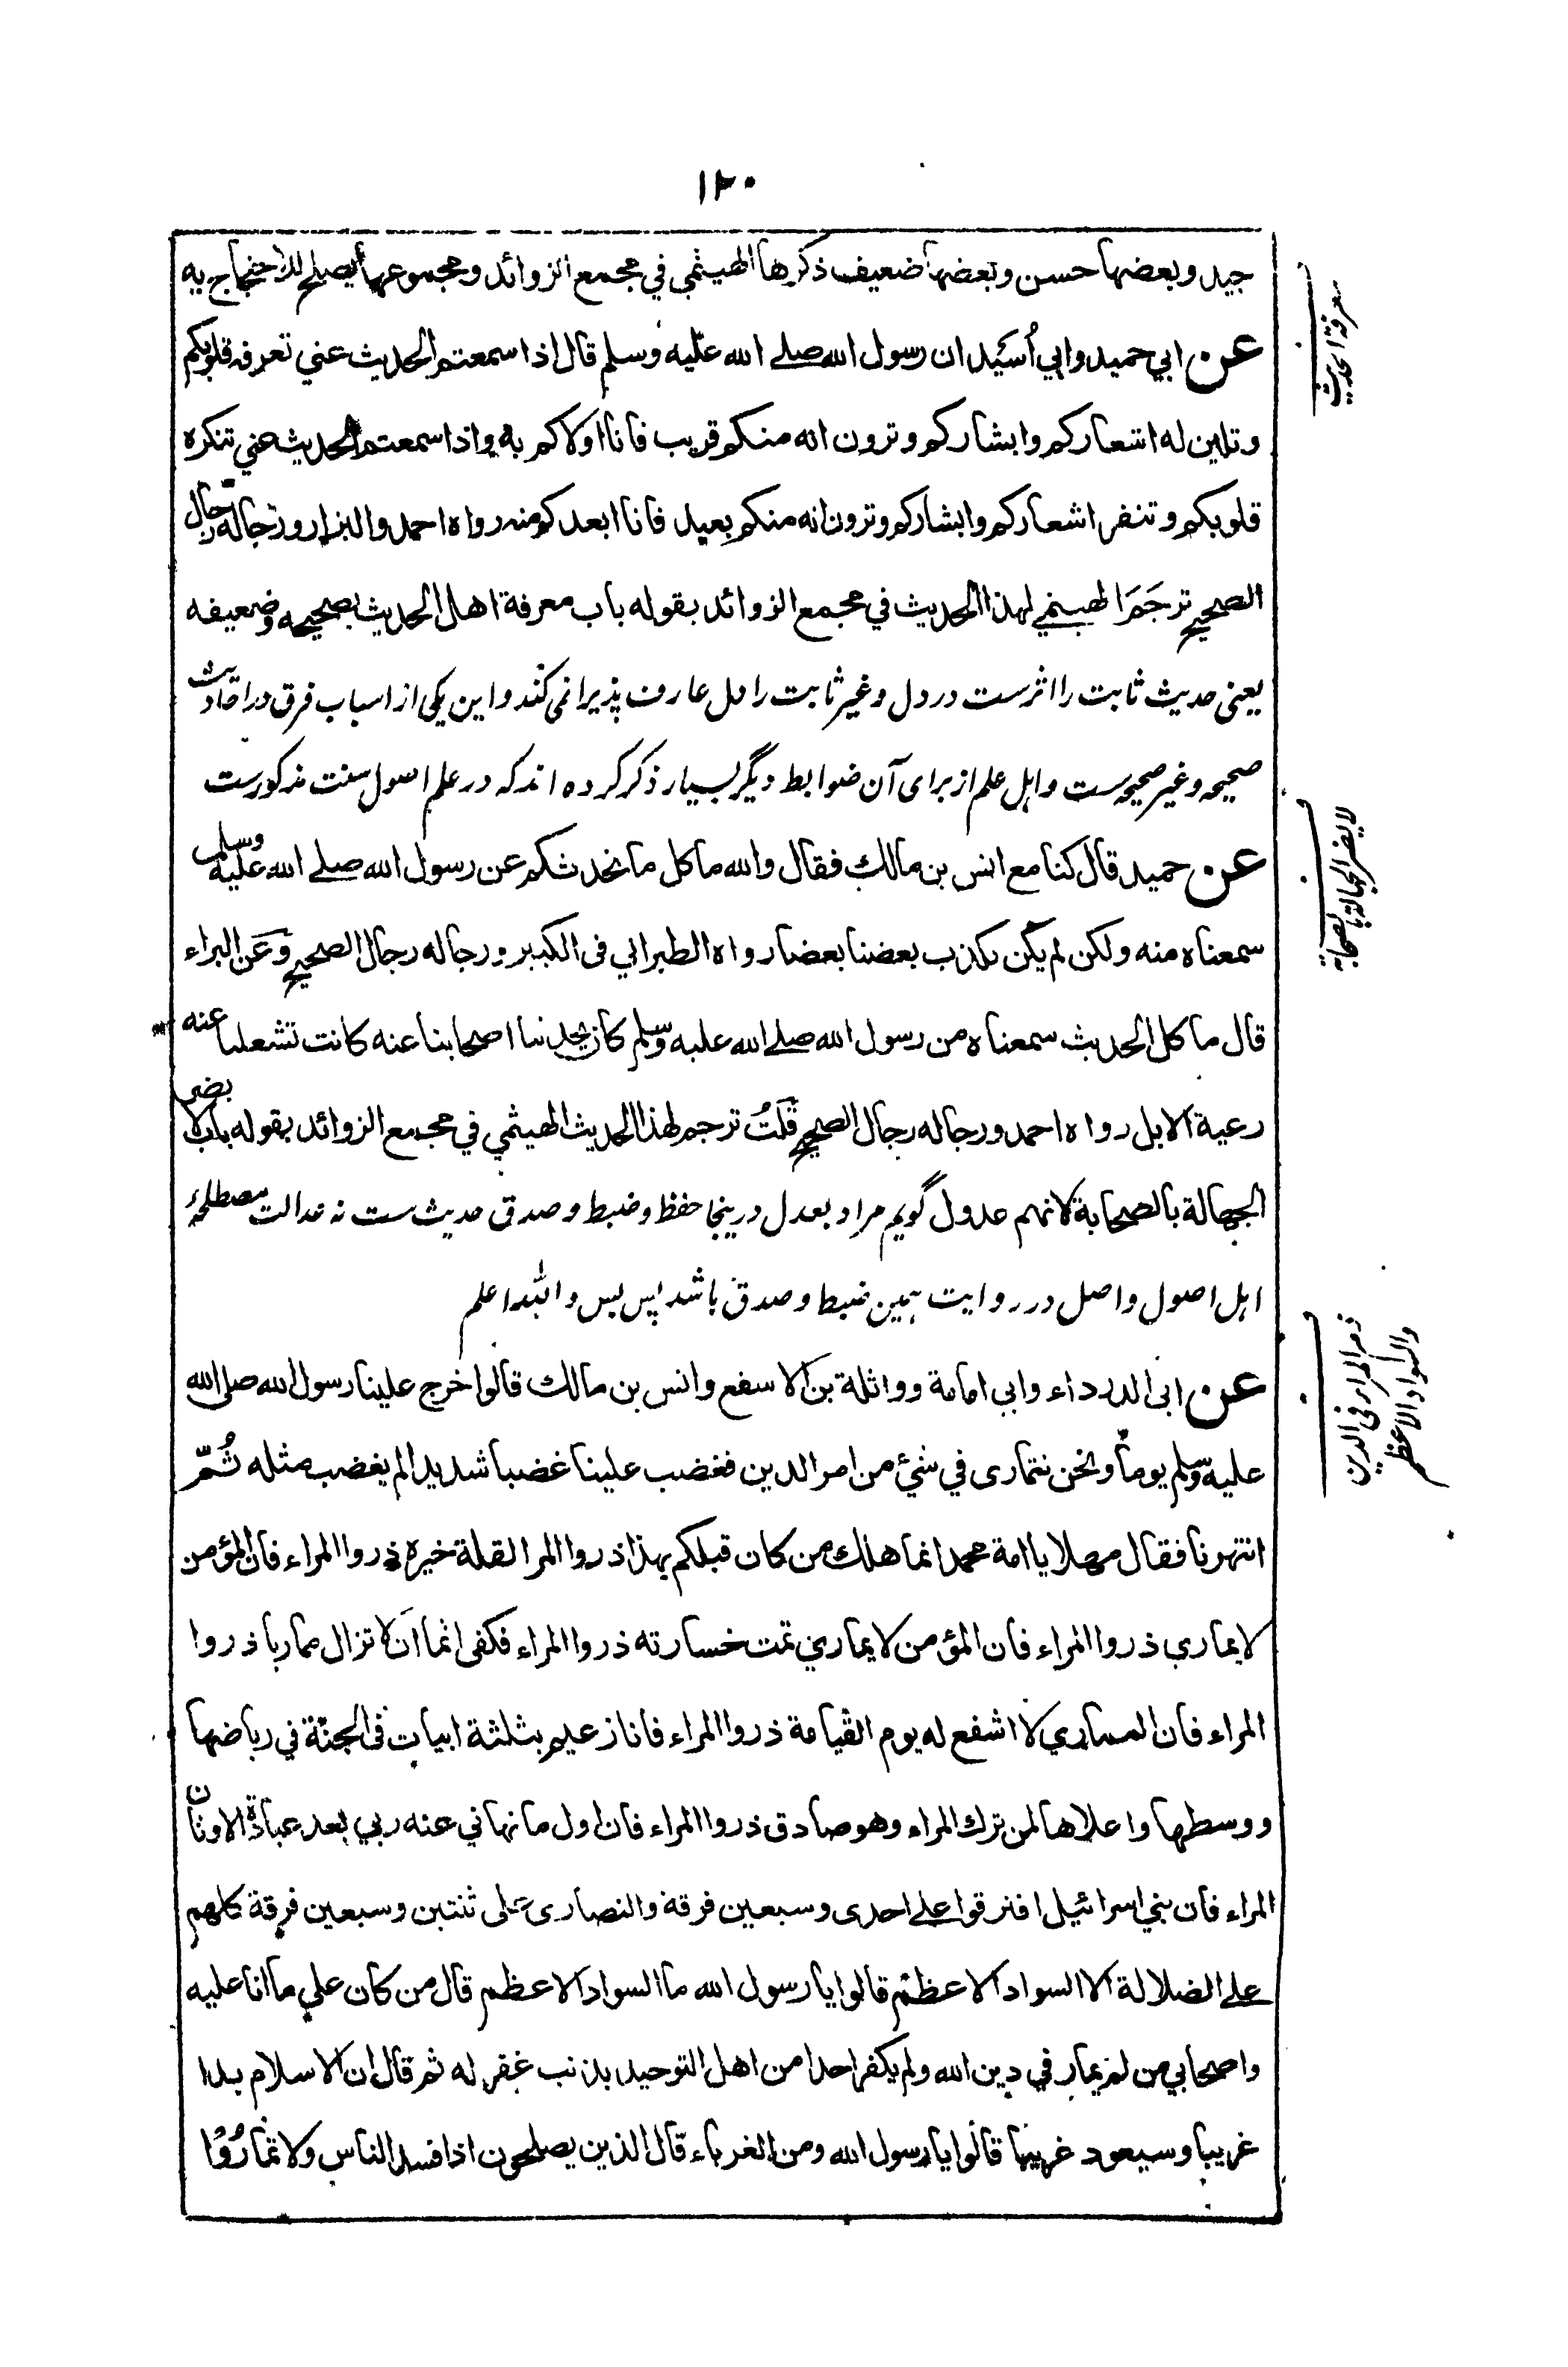 ١٢٠
جيد وبعضها حسن وبعضها ضعيف ذكرها الهيثمي في مجمع الزوائد ومجموعها يصلح للاحتجاج به
معرفة الحديث
عن ابي حميد وابي أُسَيْد ان رسول الله صلے الله عليه وسلم قال اذا سمعتم الحديث عني تعرفه قلوبكم
وتلين له اشعاركم وابشاركم وترون انه منكم قريب فانا اولاكم به واذا سمعتم الحديث عني تنكره
قلوبكم وتنفر اشعاركم وابشاركم وترون انه منكم بعيد فانا ابعدكم منه رواه احمد والبزار ورجاله رجال
الصحيح ترجَمَ الهيثمي لهذا الحديث في مجمع الزوائد بقوله باب معرفة اهل الحديث بصحيحه وضعيفه
یعنی حدیث ثابت را اثرست در دل وغیر ثابت را دل عارف پذیرا نمی کند و این یکی از اسباب فرق در احادیث
صحیحه وغیر صحیحه ست و اہل علم از برای آن ضوابط دیگر بسیار ذکر کرده اند که در علم اصول سنت مذکورست
لا يضر الجهالة بالصحابة
عن حميد قال كنا مع انس بن مالك فقال والله ما كل ما نحدثكم عن رسول الله صلے الله عليه وسلم
سمعناه منه ولكن لم يكن يكذب بعضنا بعضا رواه الطبراني فى الكبير ورجاله رجال الصحيح وعَن البراء
قال ما كل الحديث سمعناه من رسول الله صلے الله عليه وسلم كان يحدثنا اصحابنا عنه كانت تشغلنا عنه
رعية الابل رواه احمد ورجاله رجال الصحيح قلتُ ترجم لهذا الحديث الهيثمي في مجمع الزوائد بقوله باب لا يضر
الجهالة بالصحابة لانهم عدول گویم مراد بعدل درینجا حفظ وضبط وصدق حدیث ست نه عدالت مصطلحهٔ
اہل اصول واصل در روایت ہمین ضبط وصدق باشد پس بس والله اعلم
ذم المراء فى الدين
والسواد الاعظم
عن ابى الدرداء وابي امامة وواثلة بن الاسفع وانس بن مالك قالوا خرج علينا رسول الله صلى الله
عليه وسلم يوماً ونحن نتمارى في شئ من امر الدين فغضب علينا غضبا شديدا لم يغضب مثله ثُمّ
انتهرنا فقال مهلا يا امة محمد انما هلك من كان قبلكم بهذا ذروا المرا لقلة خيره ذروا المراء فان المؤمن
لا يماري ذروا المراء فان المؤمن لا يماري تمت خسارته ذروا المراء فكفى اثما اَن لا تزال مماريا ذروا
المراء فان المماري لا اشفع له يوم القيامة ذروا المراء فانا زعيم بثلثة ابيات فى الجنة في رباضها
ووسطها واعلاها لمن ترك المراء وهو صادق ذروا المراء فان اول ما نهاني عنه ربي بعد عبادة الاوثان
المراء فان بني اسرائيل افترقوا علے احدى وسبعين فرقة والنصارى على ثنتين وسبعين فرقة كلهم
علے الضلالة الا السواد الاعظم قالوا يا رسول الله ما السواد الاعظم قال من كان علي ما انا عليه
واصحابي من لم يمار في دين الله ولم يكفر احدا من اهل التوحيد بذنب غفر له ثم قال ان الاسلام بدا
غريبا وسيعود غريبا قالوا يا رسول الله ومن الغرباء قال الذين يصلحون اذا فسد الناس ولا تمارُوْا